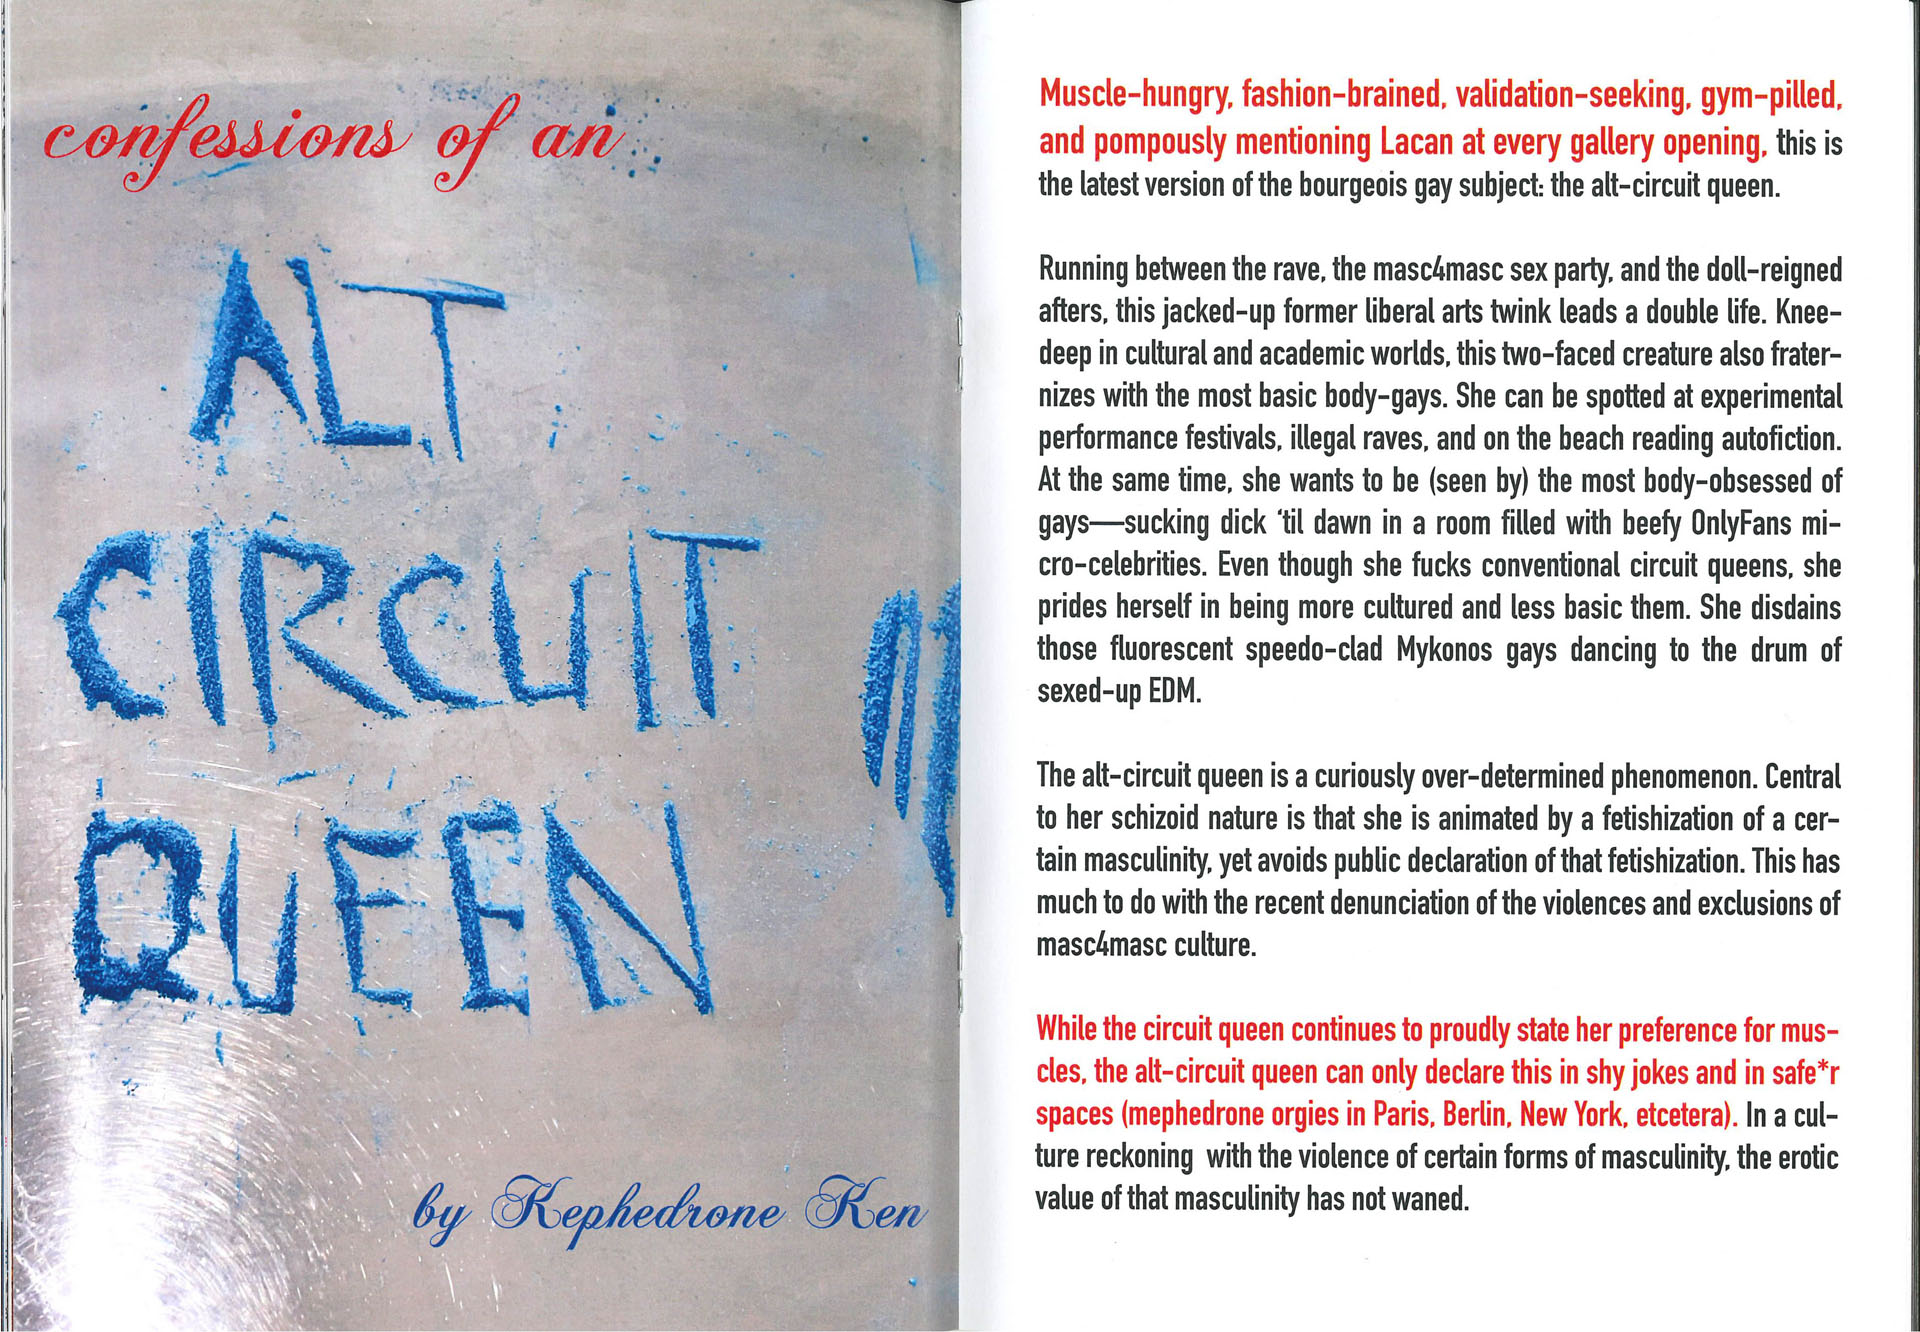 confessions of an
ALT
CIRCUIT
QUEEN
by Kephedrone Ken
Muscle-hungry, fashion-brained, validation-seeking, gym-pilled,
and pompously mentioning Lacan at every gallery opening, this is
the latest version of the bourgeois gay subject: the alt-circuit queen.
Running between the rave, the masc4masc sex party, and the doll-reigned
afters, this jacked-up former liberal arts twink leads a double life. Knee-
deep in cultural and academic worlds, this two-faced creature also frater-
nizes with the most basic body-gays. She can be spotted at experimental
performance festivals, illegal raves, and on the beach reading autofiction.
At the same time, she wants to be (seen by) the most body-obsessed of
gays—sucking dick ‘til dawn in a room filled with beefy OnlyFans mi-
cro-celebrities. Even though she fucks conventional circuit queens, she
prides herself in being more cultured and less basic them. She disdains
those fluorescent speedo-clad Mykonos gays dancing to the drum of
sexed-up EDM.
The alt-circuit queen is a curiously over-determined phenomenon. Central
to her schizoid nature is that she is animated by a fetishization of a cer-
tain masculinity, yet avoids public declaration of that fetishization. This has
much to do with the recent denunciation of the violences and exclusions of
masc4masc culture.
While the circuit queen continues to proudly state her preference for mus-
cles, the alt-circuit queen can only declare this in shy jokes and in safe*r
spaces (mephedrone orgies in Paris, Berlin, New York, etcetera). In a cul-
ture reckoning with the violence of certain forms of masculinity, the erotic
value of that masculinity has not waned.